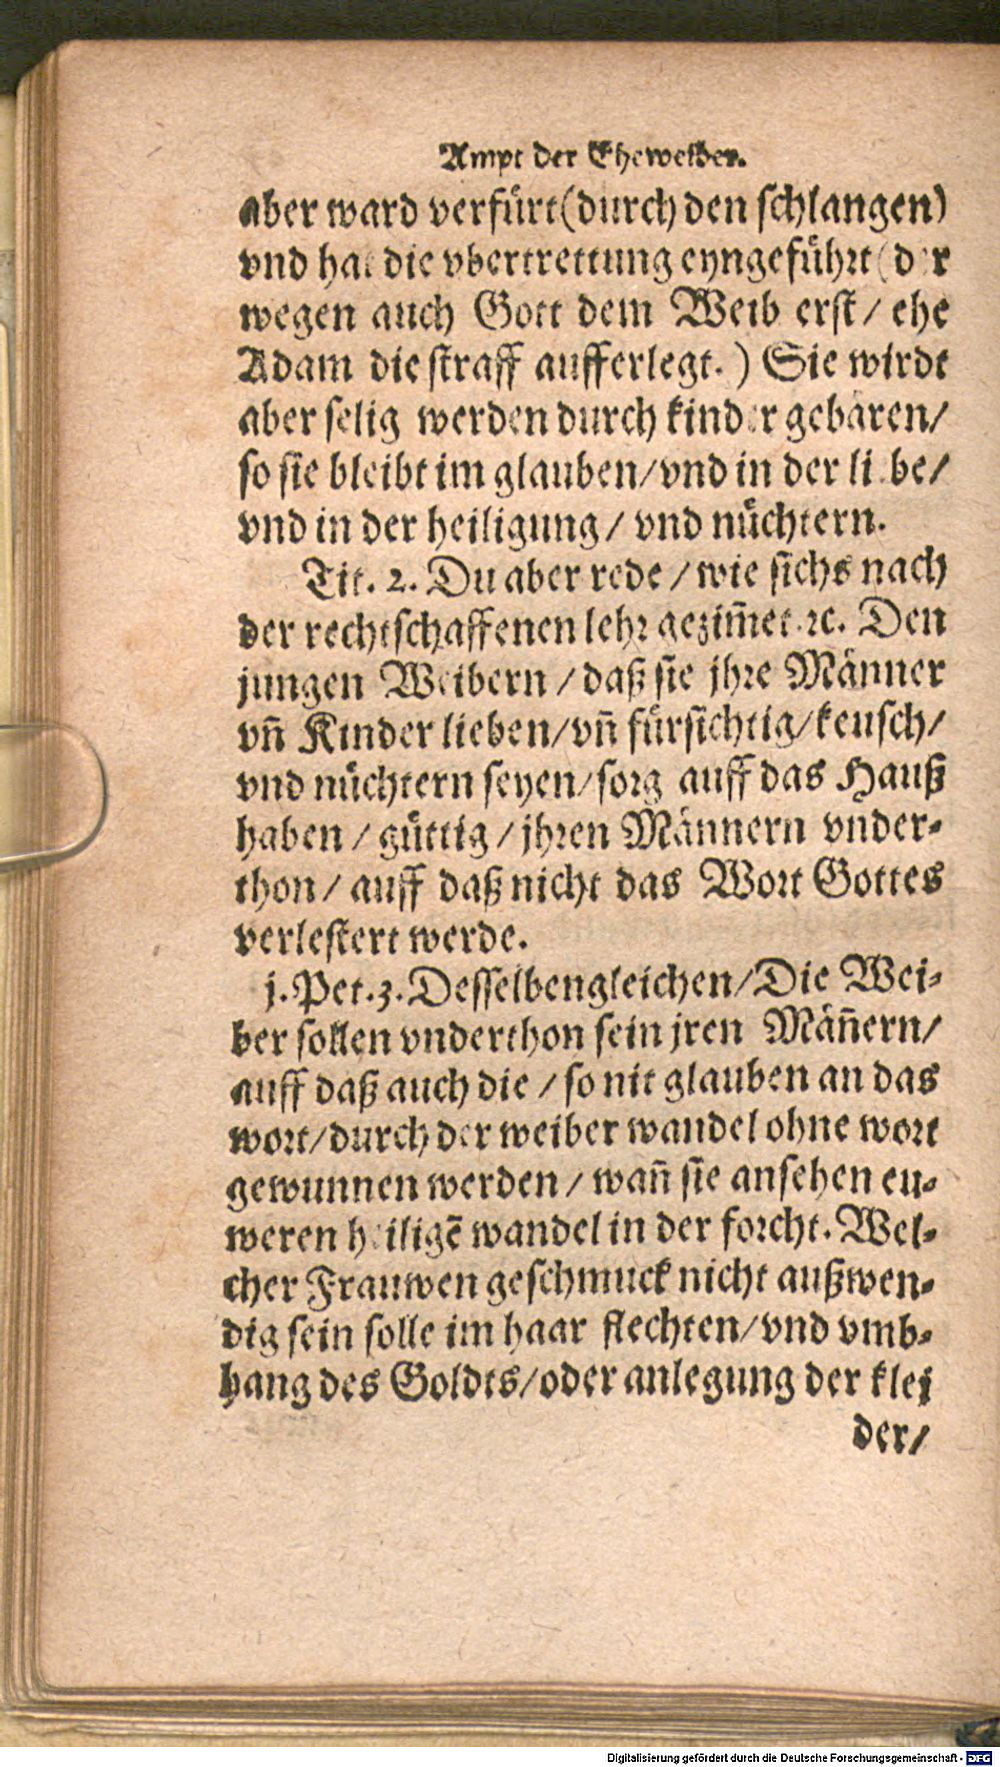 Ampt der Eheweiber.
aber ward verfürt (durch den schlangen)
vnd hat die vbertrettung eyngeführt (der
wegen auch Gott dem Weib erst / ehe
Adam die straff aufferlegt. ) Sie wirdt
aber selig werden durch kinder gebären /
so sie bleibt im glauben / vnd in der liebe /
vnd in der heiligung / vnd nüchtern.
Tit. 2. Du aber rede / wie sichs nach
der rechtschaffenen lehr gezim̄et. ꝛc. Den
jungen Weibern / daß sie jhre Männer
vn̄ Kinder lieben / vn̄ fürsichtig / keusch /
vnd nüchtern seyen / sorg auff das Hauß
haben / güttig / jhren Männern vnder-
thon / auff daß nicht das Wort Gottes
verlestert werde.
j. Pet. 3. Desselbengleichen / Die Wei-
ber sollen vnderthon sein jren Män̄ern /
auff daß auch die / so nit glauben an das
wort / durch der weiber wandel ohne wort
gewunnen werden / wan̄ sie ansehen eu-
weren heiligē wandel in der forcht. Wel-
cher Frauwen geschmuck nicht außwen-
dig sein solle im haar flechten / vnd vmb-
hang des Goldts / oder anlegung der klei
der /
Digitalisierung gefördert durch die Deutsche Forschungsgemeinschaft - DFG